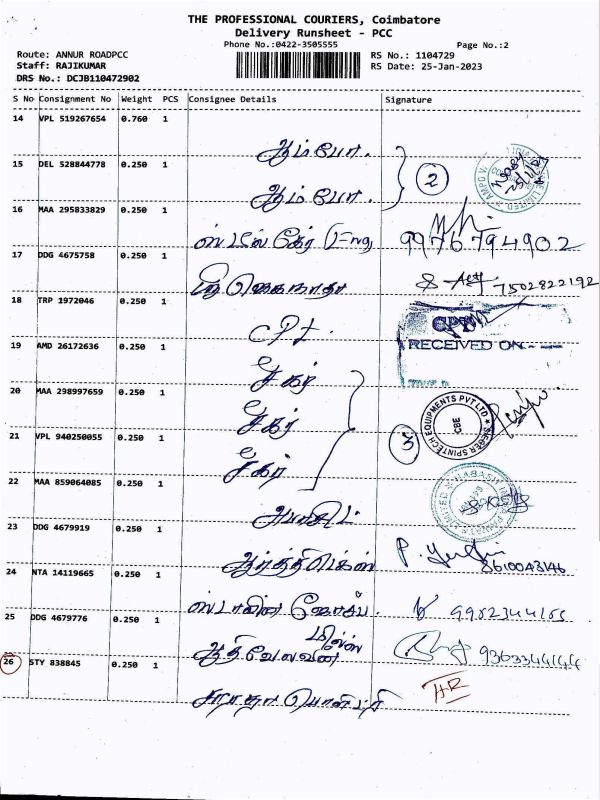 THE PROFESSIONAL COURIERS, Coimbatore
Delivery Runsheet - PCC
Phone No.:0422-3505555
Page No.:2
Route: ANNUR ROADPCC
RS No.: 1104729
Staff: RAJIKUMAR
RS Date: 25-Jan-2023
DRS No.: DCJB110472902
S No Consignment No Weight PCS Consignee Details Signature
14 VPL 519267654 0.760 1
ஆம்போ.
15 DEL 528844778 0.250 1
2
ஆம்போ.
16 MAA 295833829 0.250 1
9976794902
17 DDG 4675758 0.250 1
7502822192
18 TRP 1972046 0.250 1
CPT.
RECEIVED ON
19 AMD 26172636 0.250 1
சீகர்
20 MAA 298997659 0.250 1
சீகர்
SIEGER SPINTECH EQUIPMENTS PVT LTD
CBE
21 VPL 940250055 0.250 1
3
சீகர்
22 MAA 859064085 0.250 1
23 DDG 4679919 0.250 1
8610043146
24 NTA 14119665 0.250 1
ஸ்டாலின் ஜோசப்
25 DDG 4679776 0.250 1
மில்ஸ்
ஆதிவேலவன்
9363344144
26 STY 838845 0.250 1
சாரதா